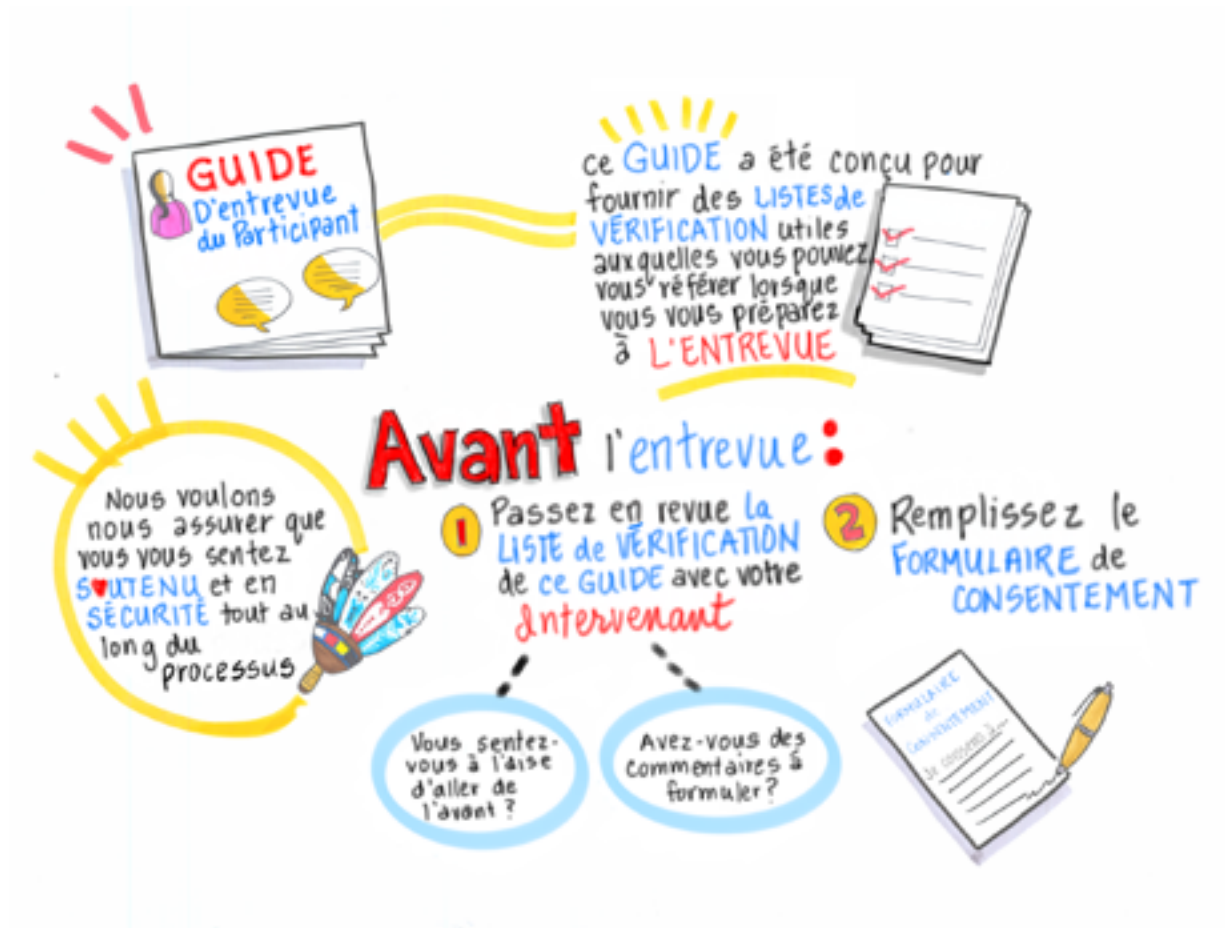 GUIDE
D'entrevue
du Participant
ce GUIDE a été conçu pour
fournir des LISTES de
VÉRIFICATION utiles
auxquelles vous pouvez
vous référer lorsque
vous vous préparez
à L'ENTREVUE
Avant l'entrevue :
Nous voulons
nous assurer que
vous vous sentez
SOUTENU et en
SÉCURITÉ tout au
long du
processus
1 Passez en revue la
LISTE de VÉRIFICATION
de ce GUIDE avec votre
Intervenant
Vous sentez-
vous à l'aise
d'aller de
l'avant ?
Avez-vous des
commentaires à
formuler ?
2 Remplissez le
FORMULAIRE de
CONSENTEMENT
FORMULAIRE
de
CONSENTEMENT
Je consens à...